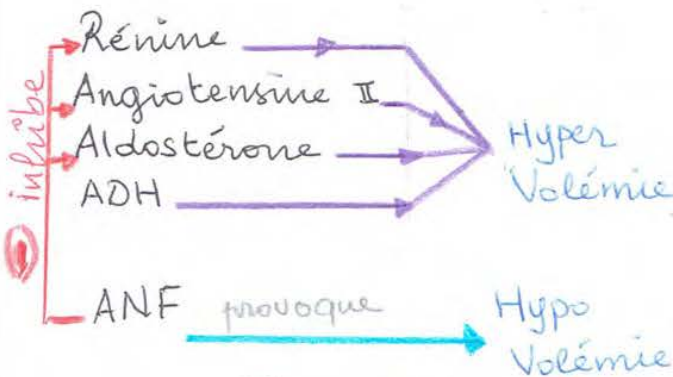 Rénine
inhibe
Angiotensine II
Aldostérone
Hyper
Volémie
ADH
ANF provoque
Hypo
Volémie